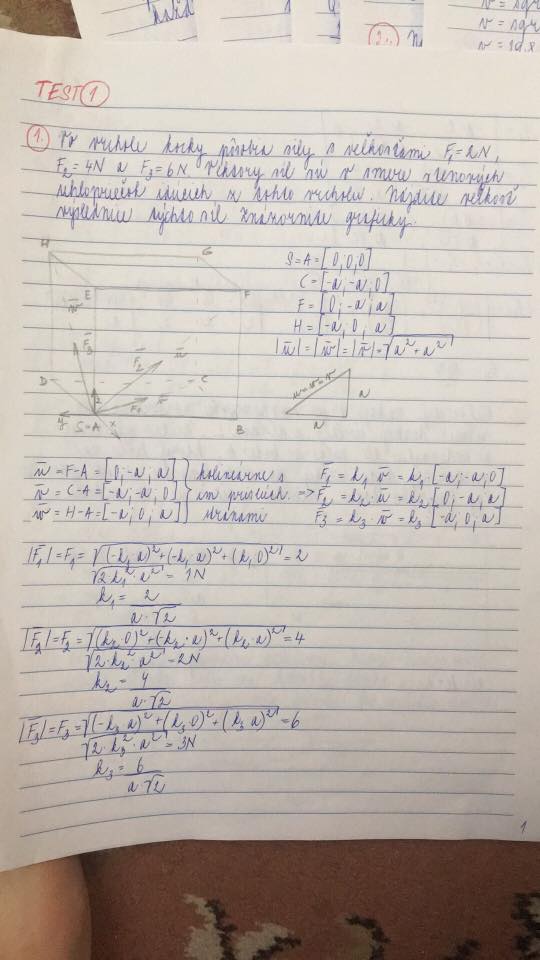 TEST 1
1. Vo vrchole kocky pôsobia sily s veľkosťami F₁=2N,
F₂=4N a F₃=6N. Vektory síl sú v smere stenových
uhlopriečok idúcich z tohto vrcholu. Nájdite veľkosť
výslednice týchto síl znázornite graficky.
H G
E F
D C
S=A B
w̄ F̄₃ F̄₂ ū F̄₁ v̄
z y x
S=A=[0;0;0]
C=[-a;-a;0]
F=[0;-a;a]
H=[-a;0;a]
|ū|=|w̄|=|v̄|=√(a²+a²)
u=v=w a
a
ū=F-A=[0;-a;a] kolineárne s F̄₁=k₁·v̄=k₁·[-a;-a;0]
v̄=C-A=[-a;-a;0] im prísluch. => F̄₂=k₂·ū=k₂[0;-a;a]
w̄=H-A=[-a;0;a] stranami F̄₃=k₃·v̄=k₃[-a;0;a]
|F̄₁|=F₁=√((-k₁·a)²+(-k₁·a)²+(k₁·0)²)=2
√(2k₁²·a²)=1N
k₁=2/(a·√2)
|F̄₂|=F₂=√((k₂·0)²+(-k₂·a)²+(k₂·a)²)=4
√(2·k₂²·a²)=2N
k₂=4/(a·√2)
|F̄₃|=F₃=√((-k₃·a)²+(k₃·0)²+(k₃·a)²)=6
√(2·k₃²·a²)=3N
k₃=6/(a·√2)
1